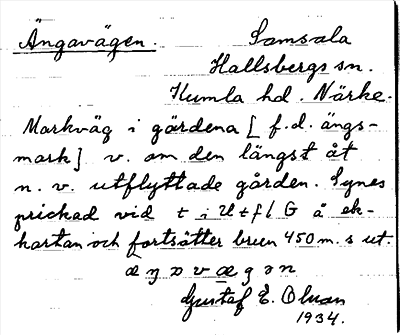 Ängavägen.
Samsala
Hallsbergs sn.
Kumla hd. Närke.
Markväg i gärdena [ f.d. ängs-
mark] v. om den längst åt
n. v. utflyttade gården. Synes
prickad vid t i Utfl G å ek-
kartan och fortsätter brun 450 m. s ut.
Gustaf E. Olson
1934.